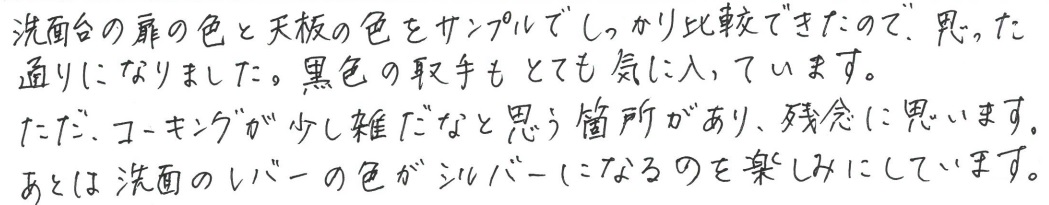 洗面台の扉の色と天板の色をサンプルでしっかり比較できたので、思った
通りになりました。黒色の取手もとても気に入っています。
ただ、コーキングが少し雑だなと思う箇所があり、残念に思います。
あとは洗面のレバーの色がシルバーになるのを楽しみにしています。